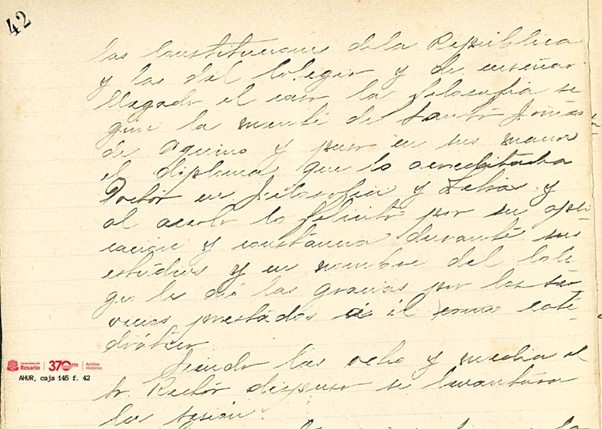 42
las Constituciones de la República
y las del Colegio y de enseñar
llegado el caso la filosofía se
gún la mente de Santo Tomás
de Aquino y puso en sus manos
el diploma que lo acreditaba
Doctor en filosofía y Letras y
al acto lo felicitó por su apli
cación y constancia durante sus
estudios y en nombre del Cole
gio le dió las gracias por los ser
vicios prestados a él como cate
drático.
Siendo las ocho y media el
Sr. Rector dispuso se levantara
la sesión.
Universidad del
Rosario
370
Archivo
Histórico
AHUR, caja 145 f. 42